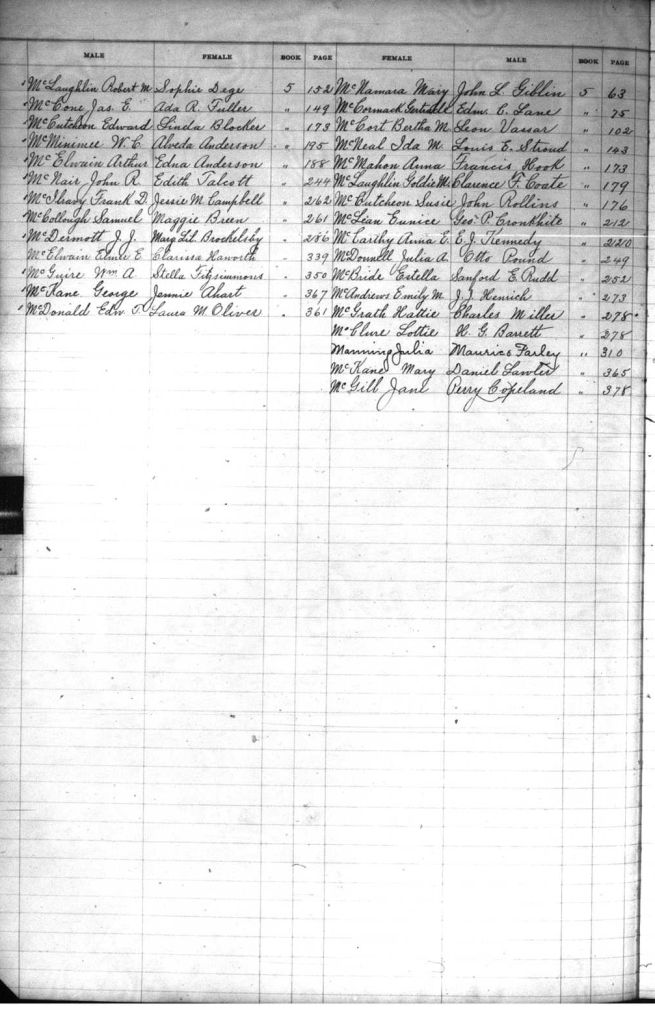 MALE FEMALE BOOK PAGE FEMALE MALE BOOK PAGE
McLaughlin Robert M. Sophie Dege 5 152 McNamara Mary John L. Giblin 5 63
McCone Jas. E. Ada R. Fuller " 149 McCormack Gertrude Edw. C. Lane " 75
McCutcheon Edward Linda Blocker " 173 McCort Bertha M. Leon Vassar " 102
McMinimee W. C. Alveda Anderson " 195 McNeal Ida M. Louis E. Stroud " 143
McElwain Arthur Edna Anderson " 188 McMahon Anna Francis Hook " 173
McNair John R. Edith Talcott " 244 McLaughlin Goldie M. Clarence F. Coate " 179
Frank D. Jessie M. Campbell " 262 McCutcheon Susie John Rollins " 176
McCollough Samuel Maggie Breen " 261 McLean Eunice Geo. P. Cronkhite " 212
McDermott J. J. Marg Lil. Brockelsby " 286 McCarthy Anna E. E. J. Kennedy " 220
McElwain E. Clarissa Haworth " 339 McDonnell Julia A. Otto Pound " 249
McGuire Wm A. Stella Fitzsimmons " 350 McBride Estella Sanford E. Rudd " 252
McKane George Jennie Ahart " 367 McAndrews Emily M. J. J. Henrich " 273
McDonald Edw. T. Laura M. Oliver " 361 McGrath Hattie Charles Miller " 278
McClure Lottie H. G. Barrett " 278
Manning Julia Maurice Farley " 310
McKane Mary Daniel Lawler " 365
McGill Jane Perry Copeland " 378